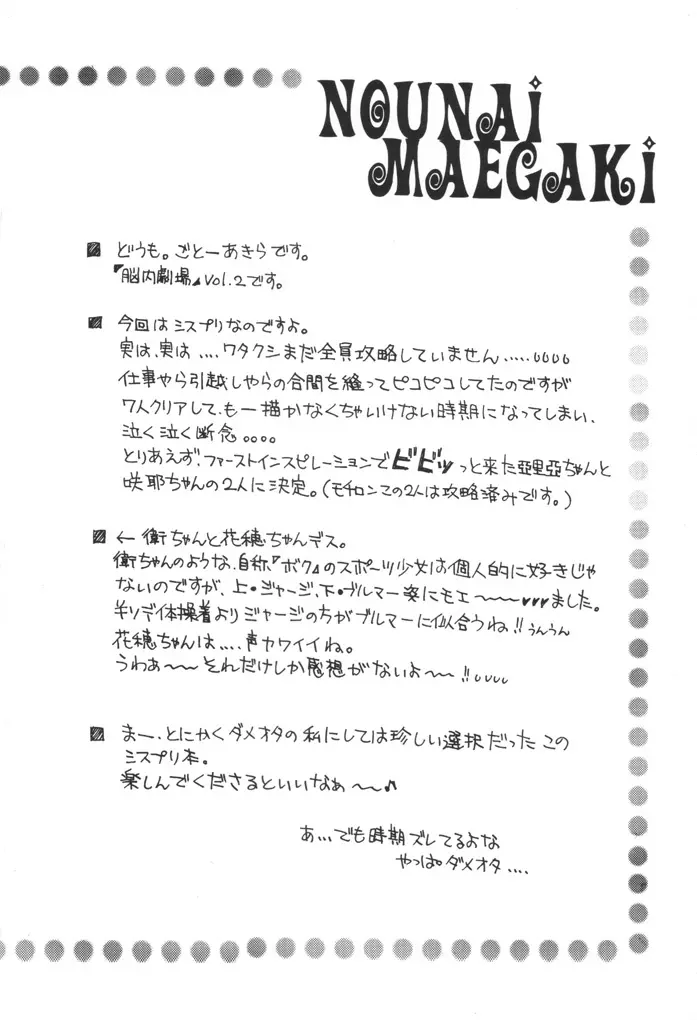 NOUNAi
MAEGAKi
どうも。ごとーあきらです。
『脳内劇場』vol.2です。
今回はミスプリなのですよ。
実は、実は....ワタクシまだ全員攻略していません.....
仕事やら引越しやらの合間を縫ってピコピコしてたのですが
7人クリアして、もー描かなくちゃいけない時期になってしまい、
泣く泣く断念。。。。
とりあえず、ファーストインスピレーションでビビッっと来た亞里亞ちゃんと
咲耶ちゃんの2人に決定。(モチロンこの2人は攻略済みです。)
← 衛ちゃんと花穂ちゃんデス。
衛ちゃんのような、自称『ボク』のスポーツ少女は個人的に好きじゃ
ないのですが、上・ジャージ、下・ブルマー姿にモエ〜〜♥♥♥ました。
半ソデ体操着よりジャージの方がブルマーに似合うね!!うんうん
花穂ちゃんは....声カワイイね。
うわぁ〜〜それだけしか感想がないよ〜〜!!
まー、とにかくダメオタの私にしては珍しい選択だったこの
ミスプリ本。
楽しんでくださるといいなぁ〜〜♪
あ...でも時期ズレてるよな
やっぱダメオタ....